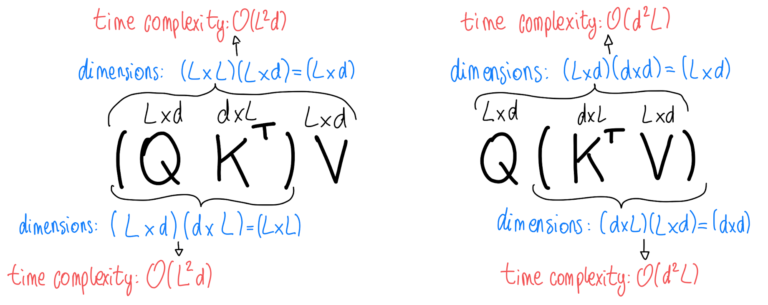 time complexity: O(L²d)
dimensions: (L×L)(L×d)=(L×d)
L×d d×L L×d
(Q Kᵀ) V
dimensions: (L×d)(d×L)=(L×L)
time complexity: O(L²d)
time complexity: O(d²L)
dimensions: (L×d)(d×d)=(L×d)
L×d d×L L×d
Q (Kᵀ V)
dimensions: (d×L)(L×d)=(d×d)
time complexity: O(d²L)